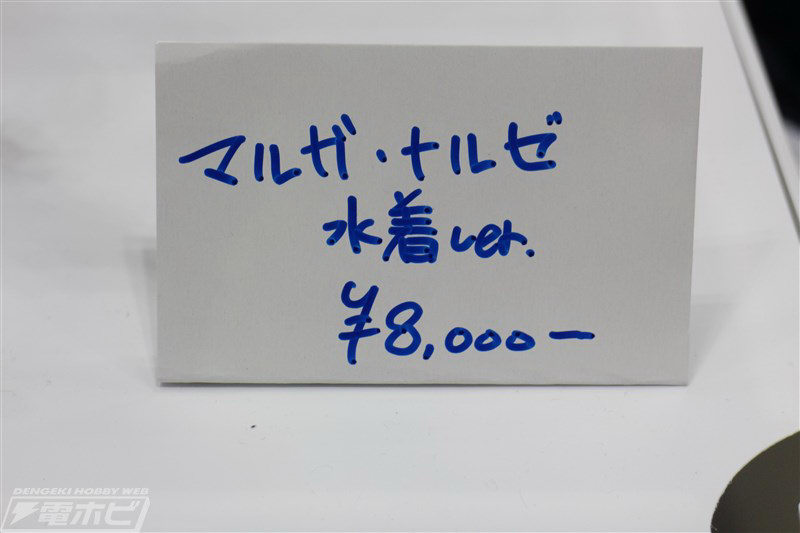 マルガ・ナルゼ
水着ver.
¥8,000ー
DENGEKI HOBBY WEB
電ホビ